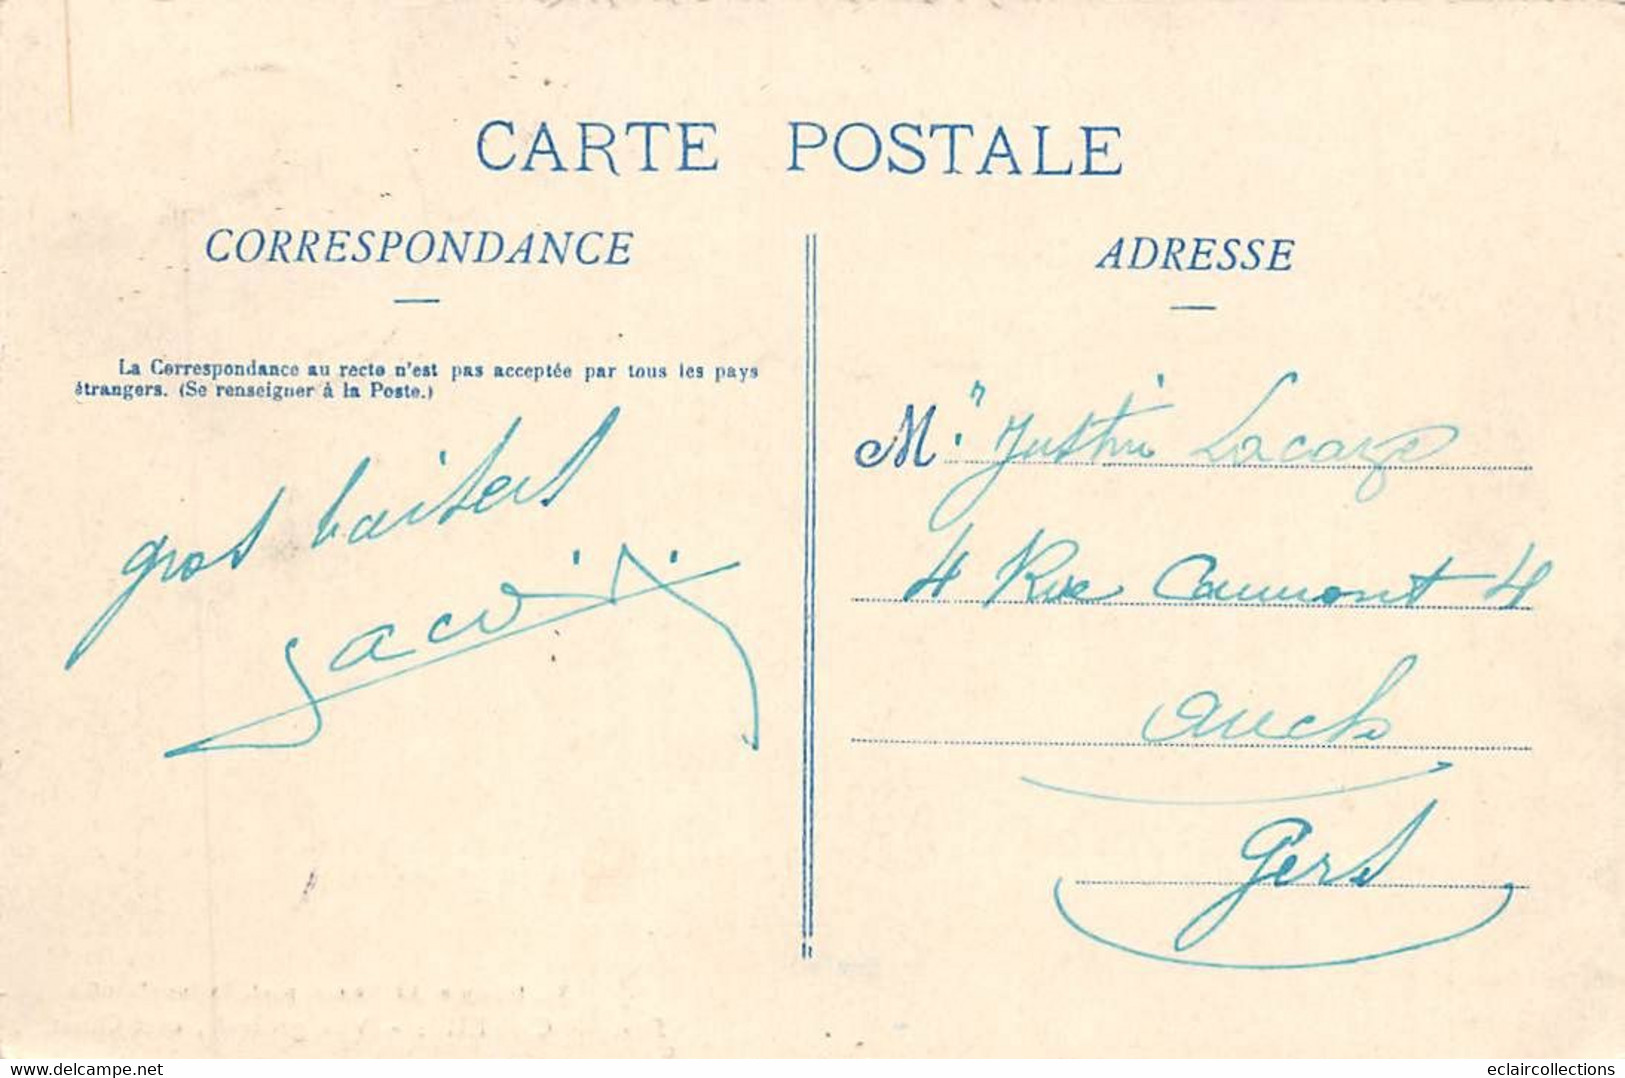 CARTE POSTALE
CORRESPONDANCE
La Correspondance au recto n'est pas acceptée par tous les pays
étrangers. (Se renseigner à la Poste.)
gros baisers
ADRESSE
M.r Justin Lacaze
4 Rue Caumont 4
Auch
Gers
delcampe.net
eclaircollections